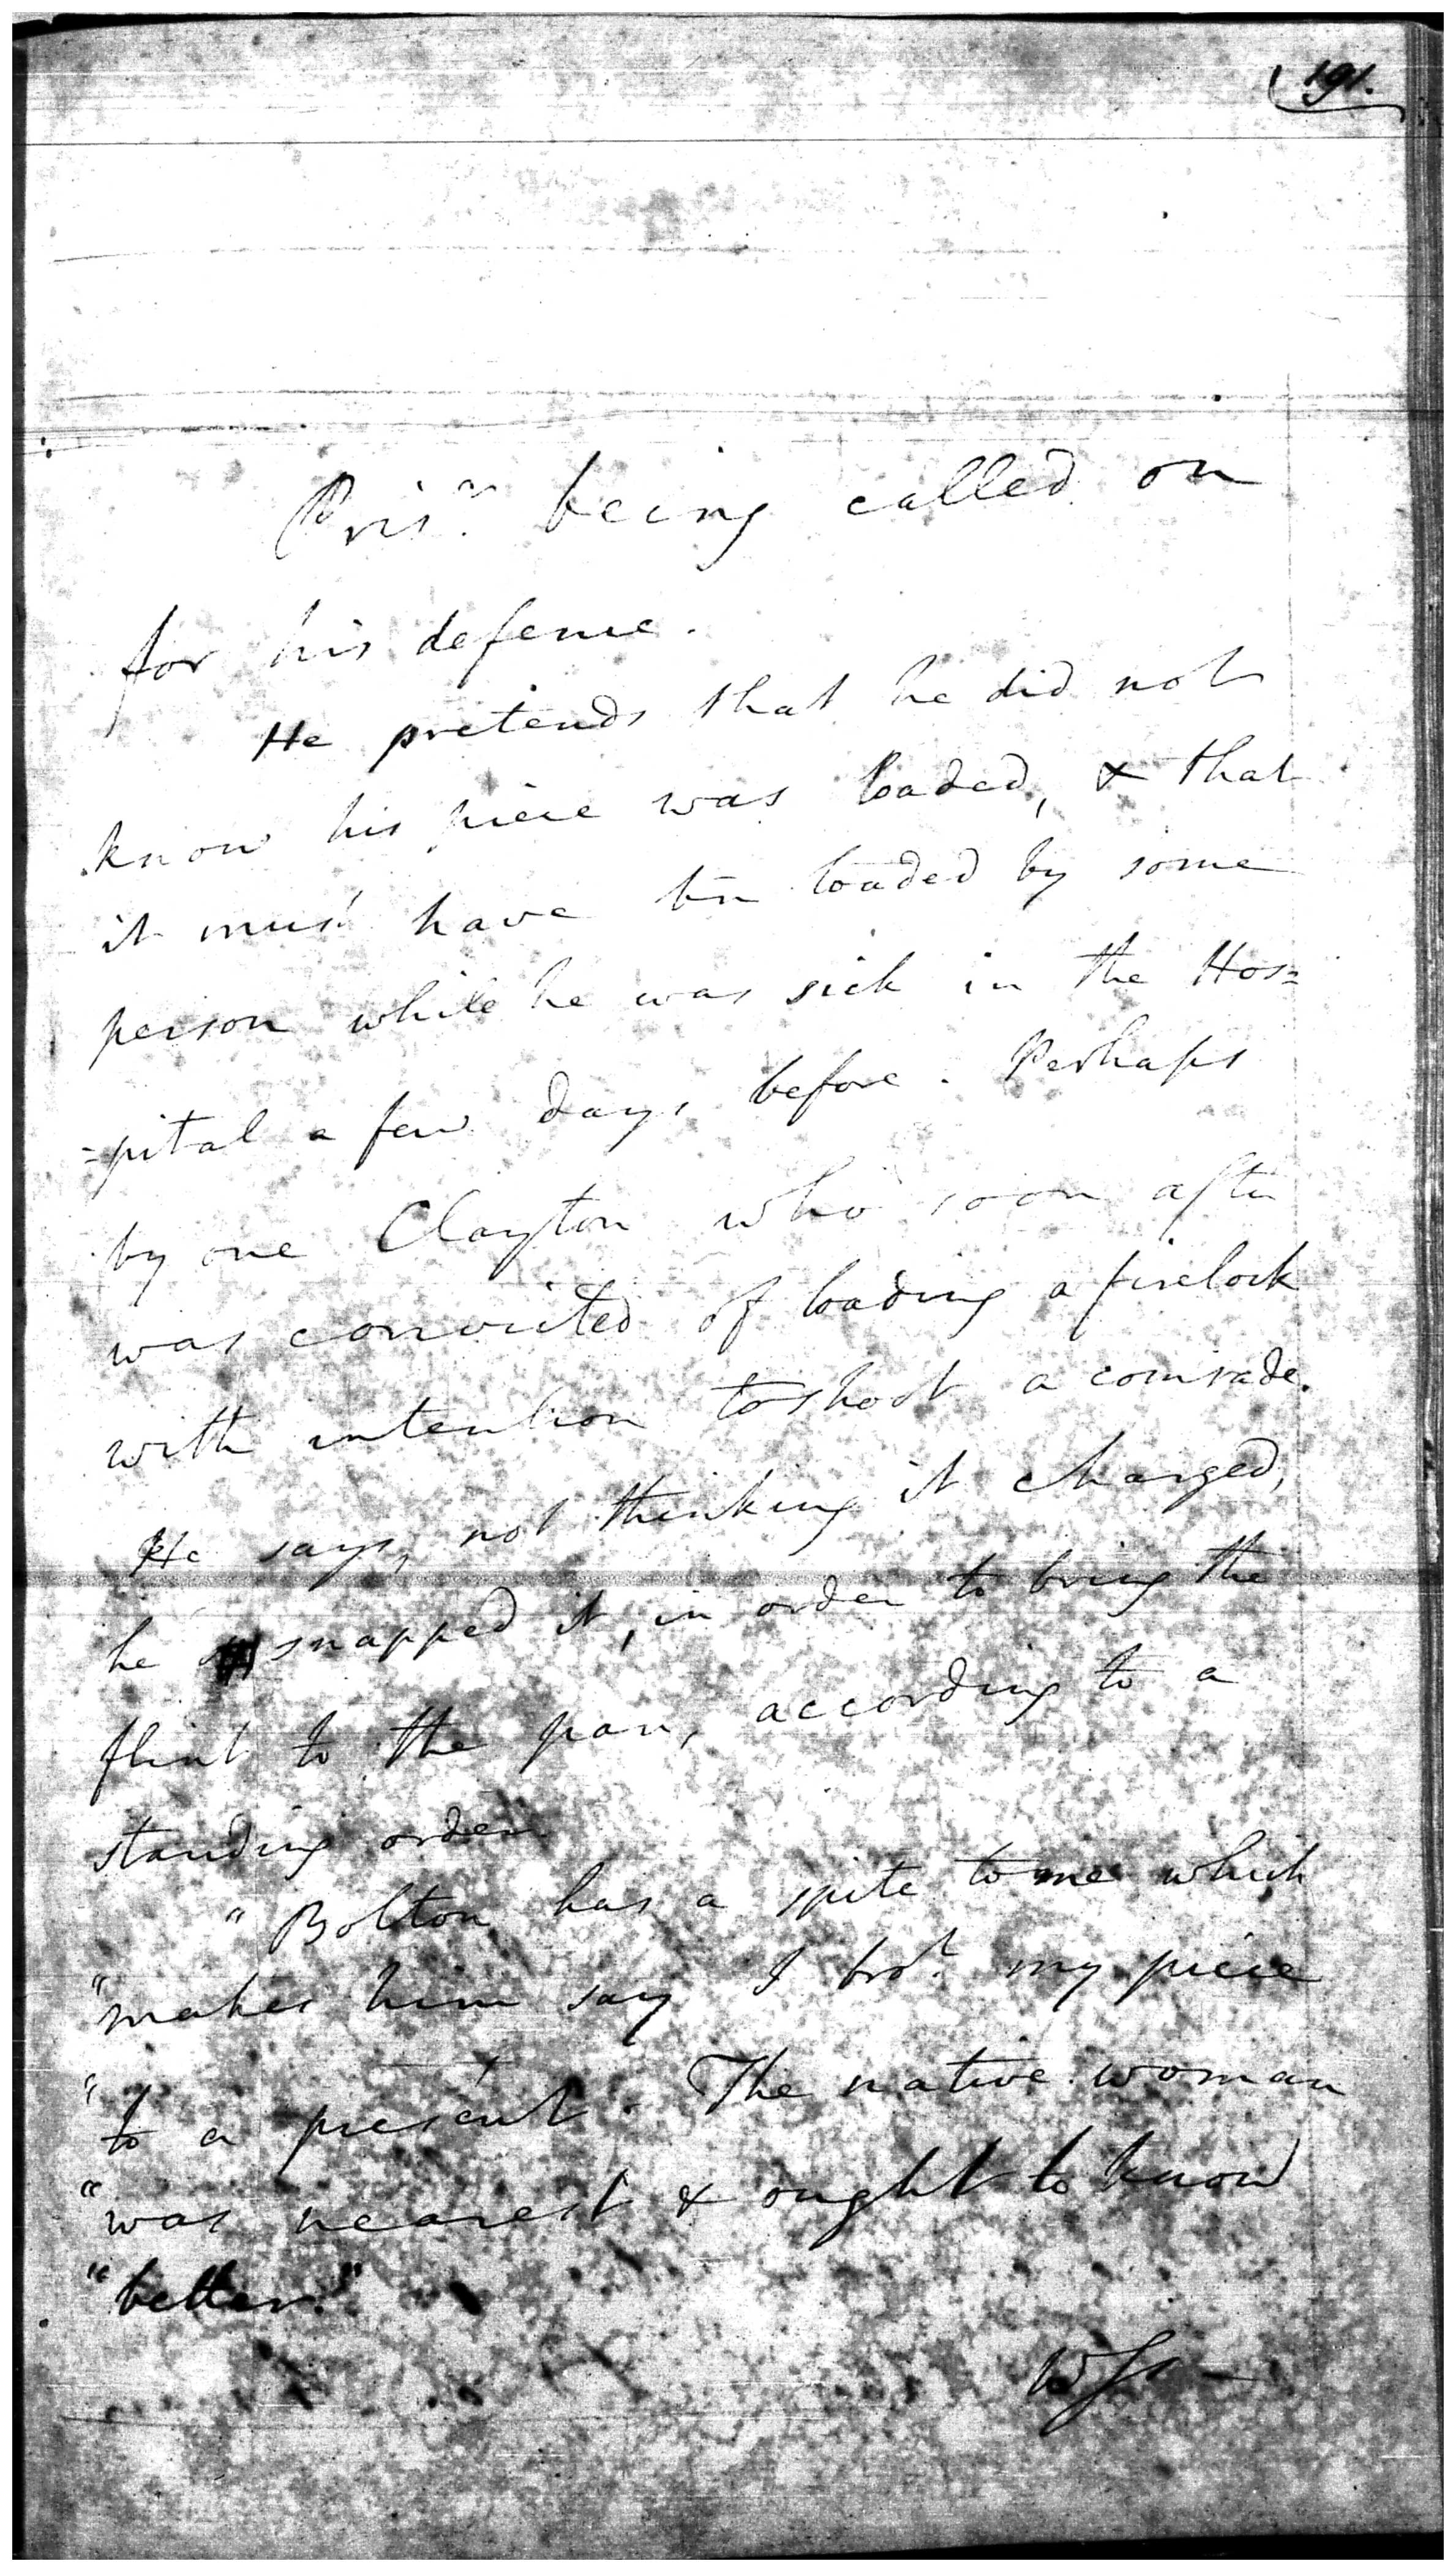 191.
Prisr. being called on
for his defence.
He pretends that he did not
know his piece was loaded, & that
it must have bn loaded by some
person while he was sick in the Hos=
=pital a few days before. Perhaps
by one Clayton who soon after
was convicted of loading a firelock
with intention to shoot a comrade.
He says, not thinking it charged,
he snapped it, in order to bring the
flint to the pan, according to a
standing order.
"Bolton has a spite to me which
"makes him say I brot. my piece
"to a present. The native woman
"was nearest & ought to know
"better."